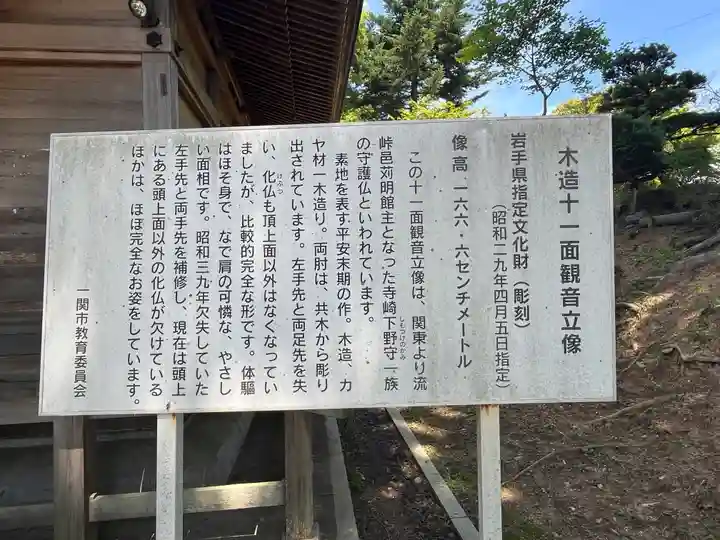 木造十一面観音立像
岩手県指定文化財（彫刻）
（昭和二九年四月五日指定）
像高 一六六・六センチメートル
この十一面観音立像は、関東より流
峠邑苅明館主となった寺崎下野守一族
しもつけのかみ
の守護仏といわれています。
素地を表す平安末期の作。木造、カ
ヤ材一木造り。両肘は、共木から彫り
出されています。左手先と両足先を失
い、化仏も頂上面以外はなくなってい
けぶつ
ましたが、比較的完全な形です。体軀
はほそ身で、なで肩の可憐な、やさし
い面相です。昭和三九年欠失していた
左手先と両手先を補修し、現在は頭上
にある頭上面以外の化仏が欠けている
ほかは、ほぼ完全なお姿をしています。
一関市教育委員会